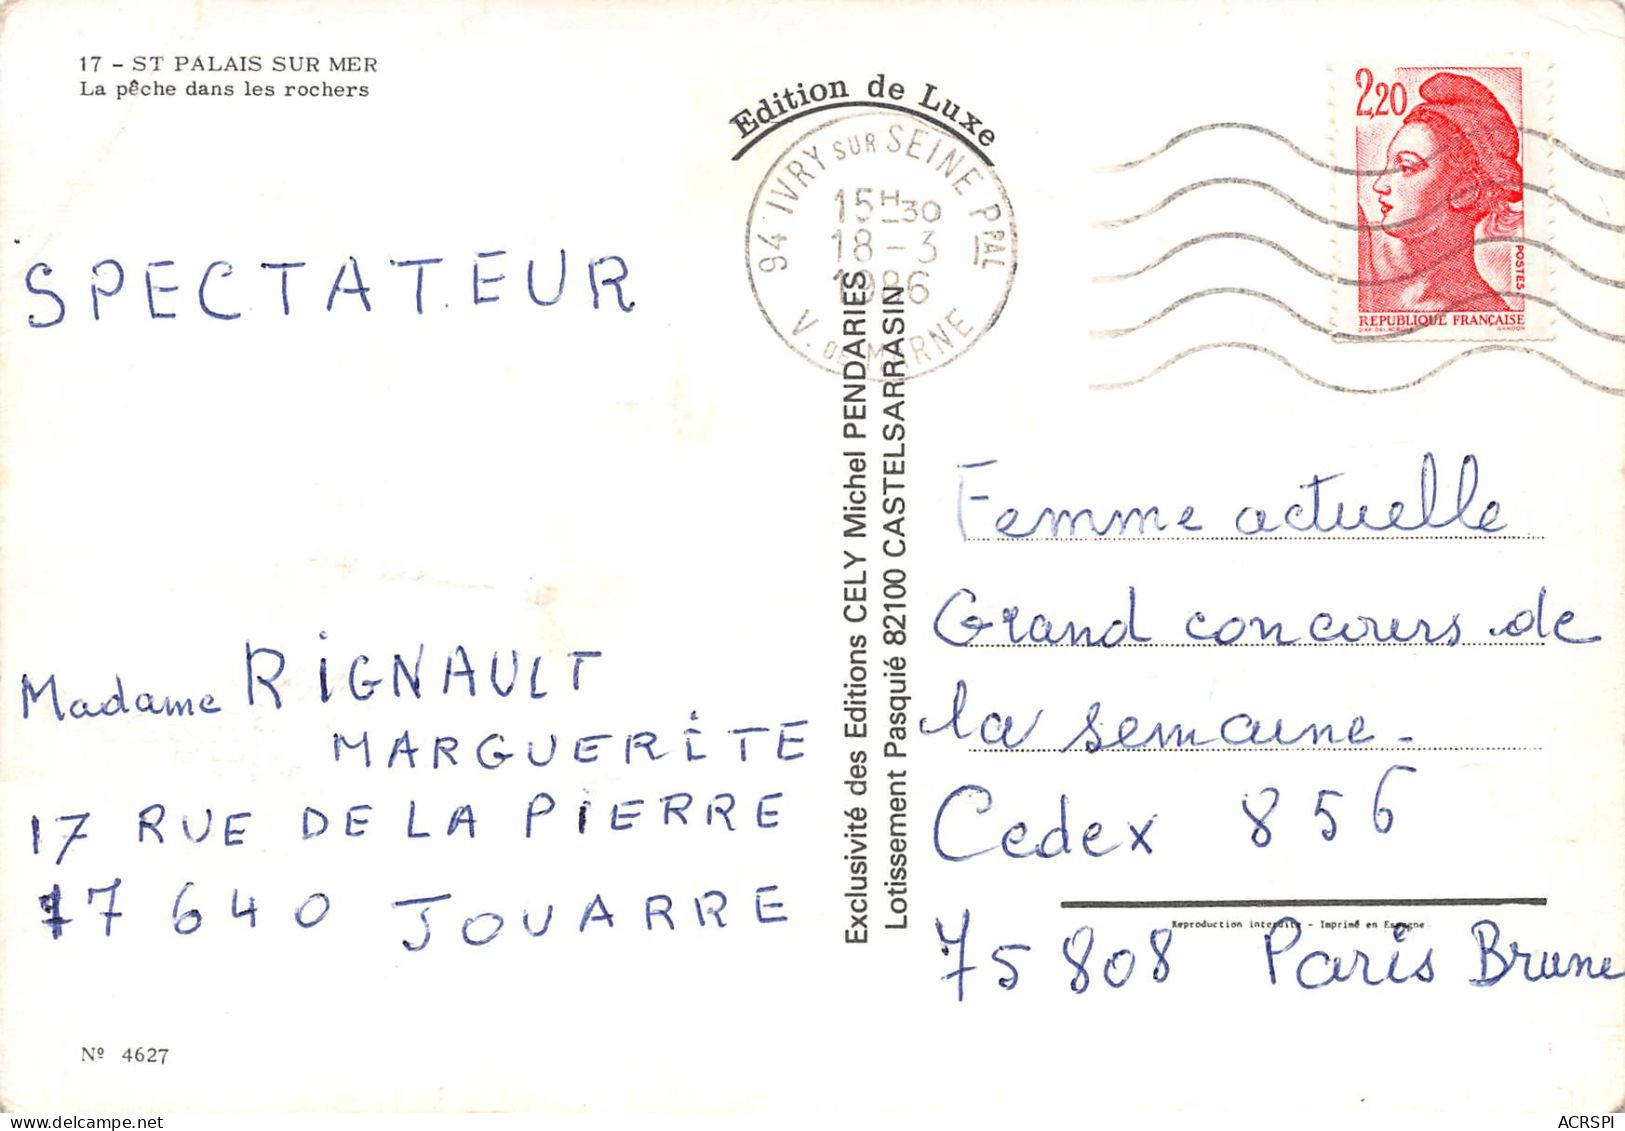 17 - ST PALAIS SUR MER
La pêche dans les rochers
Edition de Luxe
94 IVRY SUR SEINE PPAL
15H30
18-3
1986
V. DE MARNE
2,20
POSTES
REPUBLIQUE FRANÇAISE
GANDON
SPECTATEUR
Madame RIGNAULT
MARGUERITE
17 RUE DE LA PIERRE
17 640 JOUARRE
Nº 4627
Exclusivité des Editions CELY Michel PENDARIES
Lotissement Pasquié 82100 CASTELSARRASIN
Femme actuelle
Grand concours de
la semaine -
Cedex 856
Reproduction interdite - Imprimé en Espagne
75 808 Paris Brune
ACRSPI